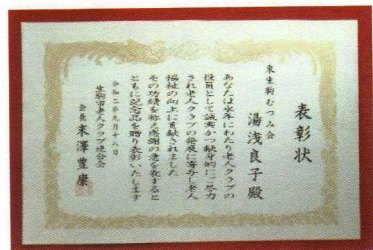 表彰状
東生駒むつみ会
湯浅良子殿
あなたは永年にわたり老人クラブの
役員として誠実かつ献身的にご尽力
され老人クラブの発展に寄与し老人
福祉の向上に貢献されました
その功績を称え感謝の意を表すると
ともに記念品を贈り表彰いたします
令和二年九月十八日
生駒市老人クラブ連合会
会長 末澤豊康